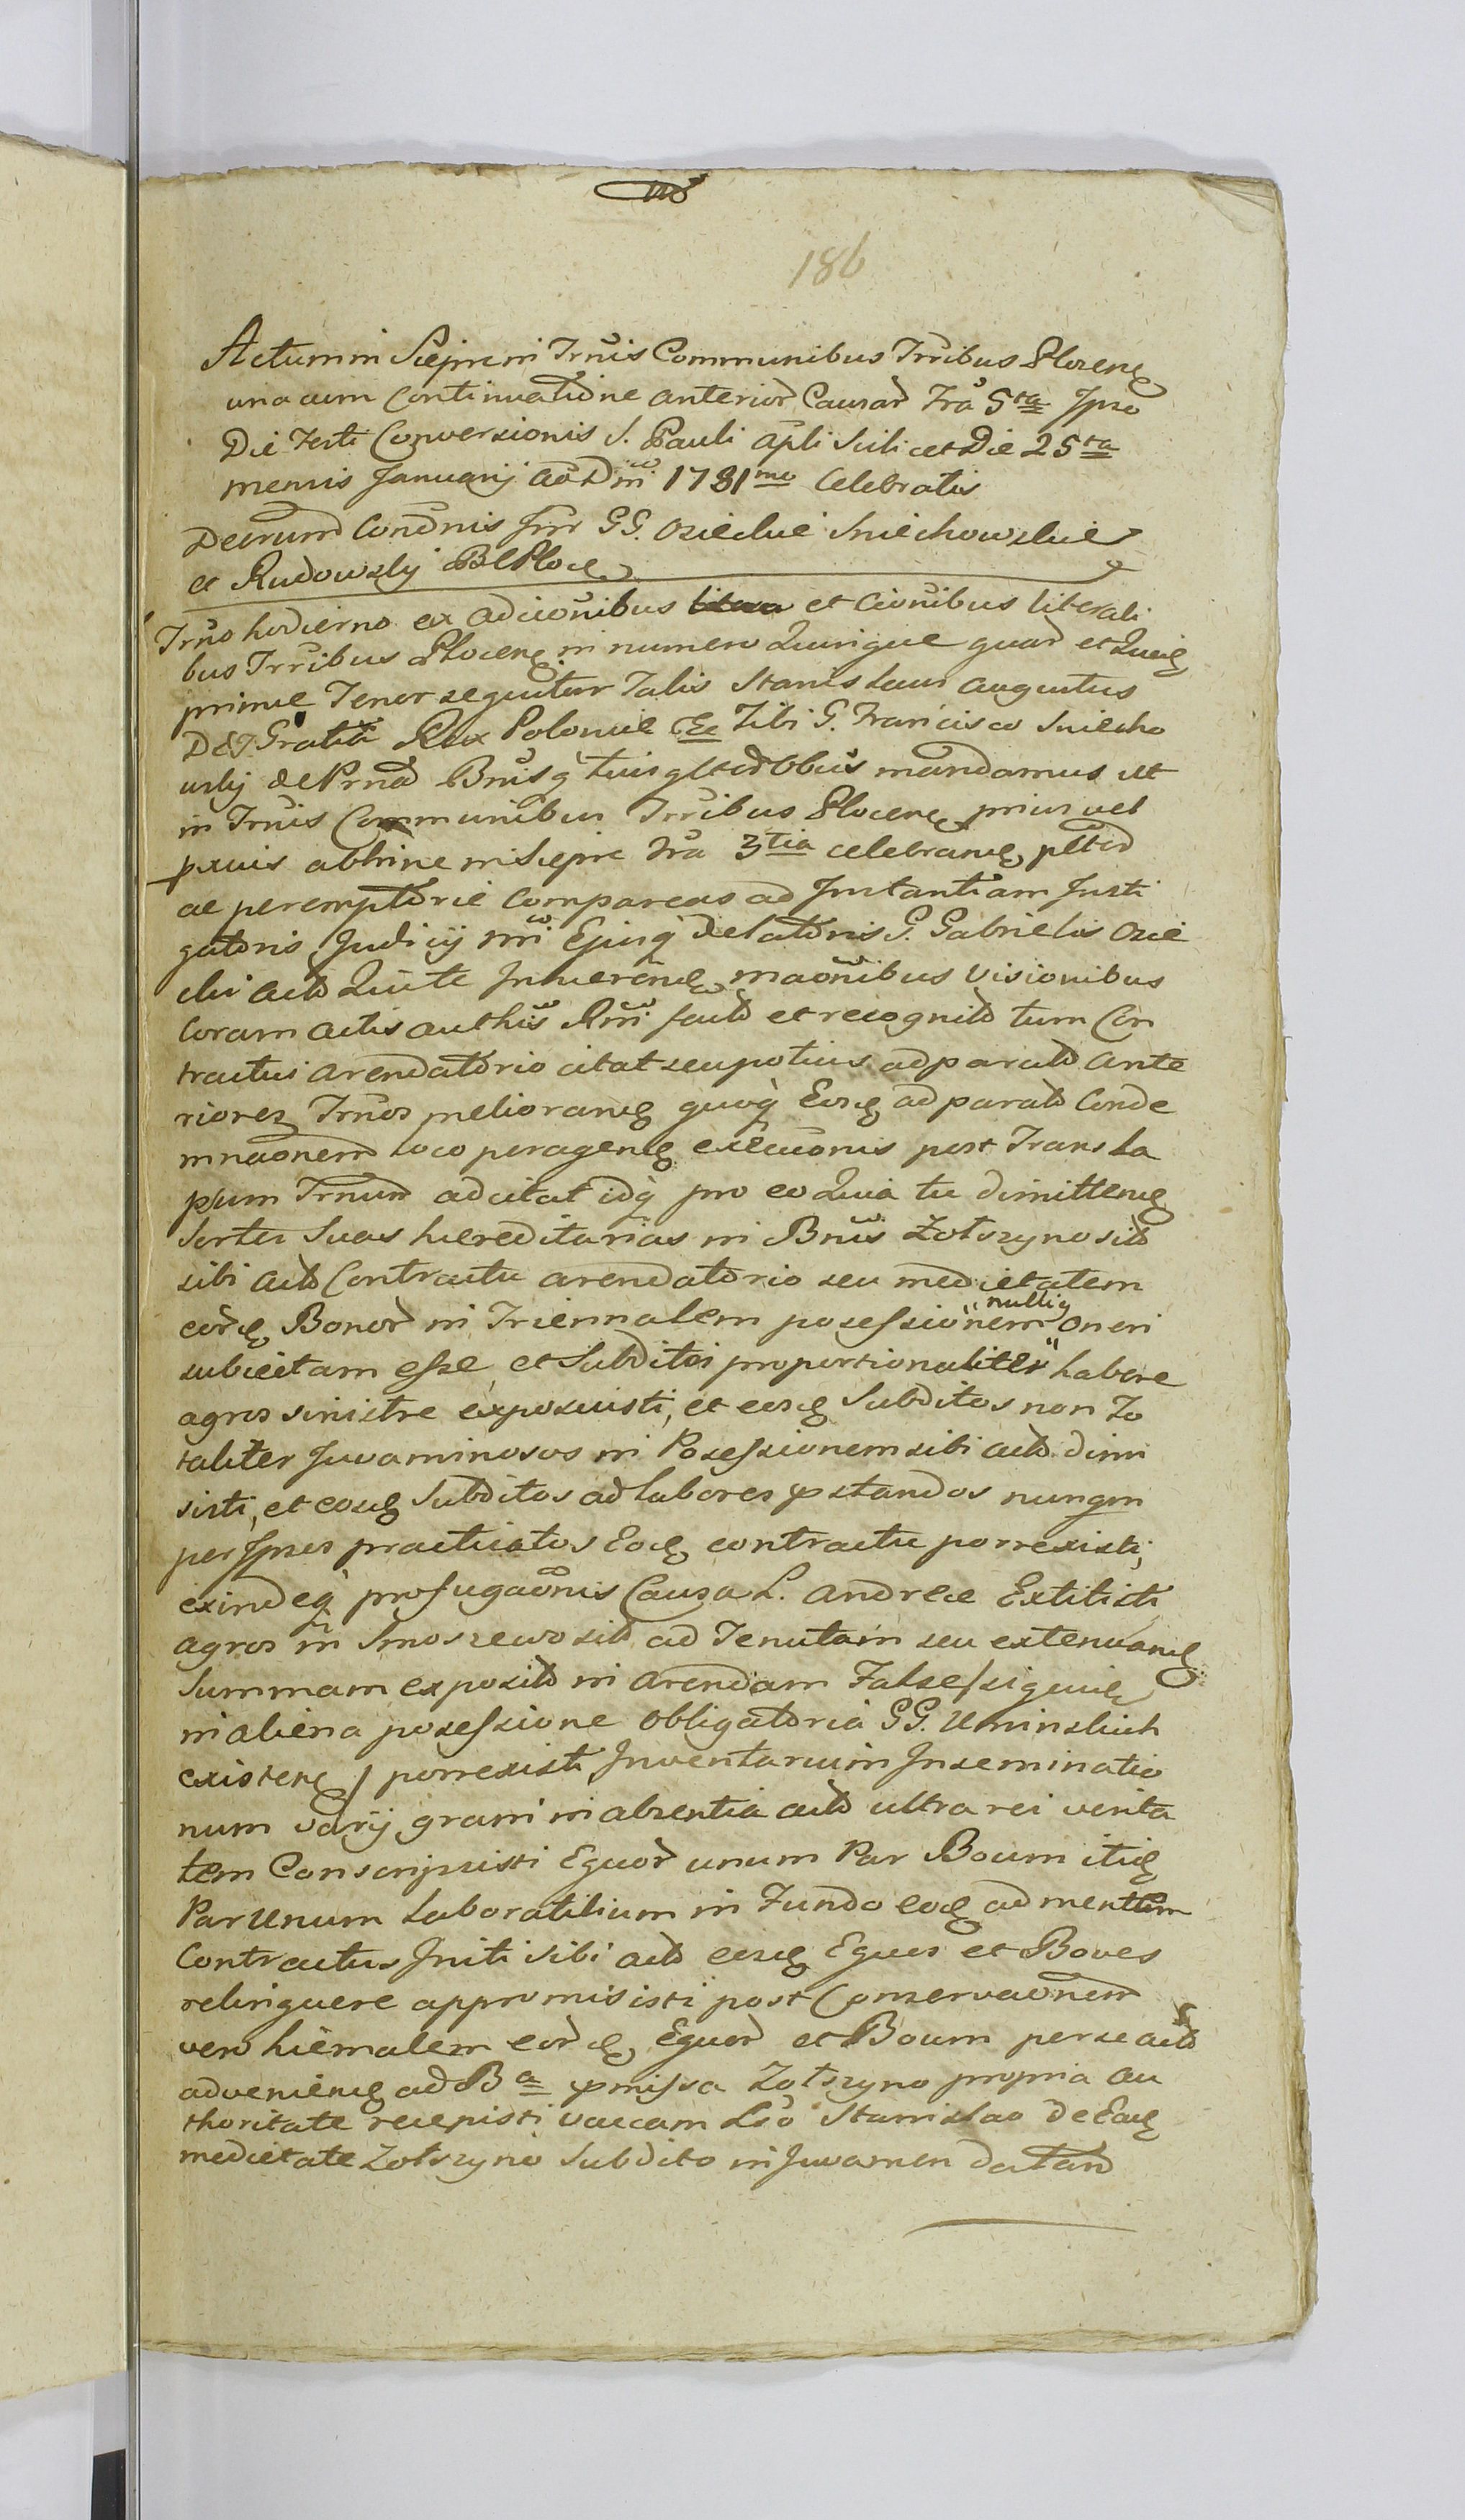 186
Actum in Sieprc in Trnis Communibus Trribus Plocens
una cum Continuatione anterior Causar Fra 5ta Ipso
Die Festi Conversionis S. Pauli Apli scilicet Die 25ta
mensis Januarij Ao Dni 1781mo Celebratis
Decrum Condnis Inr GG. Osieckie Sniechowskie
et Rudowsky
Trno hodierno ex adcionibus et cionibus literali
bus Trribus Plocens in numero Quinque quar et
prime Tenor sequitur Talis Stanislaus Augustus
D&G Gratia Rex Polonie &c Tibi G. Francisco Sniecho
wsky de Prna Bnisq tuis gltr Obus mandamus ut
in Trnis Communibus Trribus Plocens prius vel
pxuis abhinc in Sieprc Fra 3tia celebran pltr
ac peremptorie Compareas ad Instantiam Insti
gatoris Judicij nri Ejusq delatoris G. Gabrielis Osie
cki acto Qui te Inhaeren maonibus Visionibus
Coram actis authis Rmi facto et recognito tum Con
tractui arendatorio citat seu potius ad parato ante
riores Trnos melioran quoq Eosq ad parato Conde
mnaonem loco peragen execuonis post Transla
psum Trnum adcitat idq pro eo Quia tu dimitten
Sortes Suas haereditarias in Bnis Zotszyno sito
sibi acto Contractu arendatorio seu medietatem
eord Bonor in Triennalem possessionem nulliq Oneri
subiectam esse et Subditos proportionaliter habere
agros sinistre exposuisti, et eosd Subditos non To
taliter Juvaminosos in Possessionem sibi acto dimi
sisti, et eosd Subditos ad labores pstandos nunqm
per Ipsos practicatos Eod contractu porrexisti,
exindeq profugaonis Causa L. Andreae Extitisti
agros in Smoszewo sito ad Tenutam seu extenuan
Summam exposito in arendam False/siquid
in aliena possessione Obligatoria GG. Uminskich
existen/ porrexisti Inventarium Inseminatio
num varij grani in absentia acto ultra rei verita
tem Conscripsisti Equor unum Par Boum itid
Par Unum Laboratilium in Fundo eod ad mentem
Contractus Initi sibi acto eosd Equos et Boves
relinquere appromisisti post Conservaonem
vero hiemalem eord Equor et Boum per se acto
advenien ad Ba pmissa Zotszyno propria au
thoritate recepisti vaccam Lso Stanislao de Ead
medietate Zotszyno Subdito in Juvamen datam